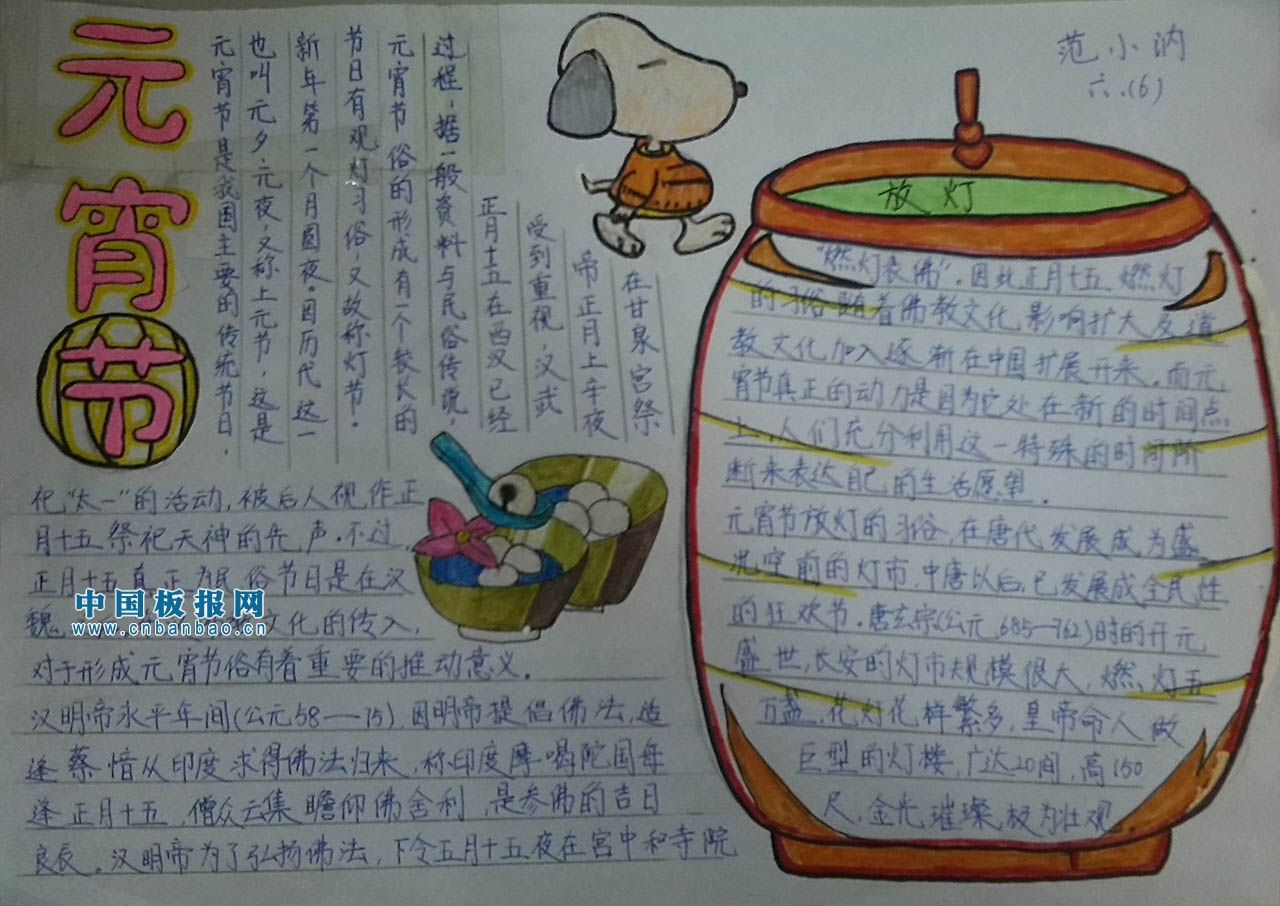 元宵节
元宵节是我国主要的传统节日,
也叫元夕、元夜,又称上元节,这是
新年第一个月圆夜。因历代这一
节日有观灯习俗,又故称灯节。
元宵节俗的形成有一个较长的
过程,据一般资料与民俗传说,
正月十五在西汉已经
受到重视,汉武
帝正月上辛夜
在甘泉宫祭
祀“太一”的活动,被后人视作正
月十五祭祀天神的先声。不过,
正月十五真正为民俗节日是在汉
魏
文化的传入,
对于形成元宵节俗有着重要的推动意义。
汉明帝永平年间(公元58—75),因明帝提倡佛法,适
逢蔡愔从印度求得佛法归来,称印度摩喝陀国每
逢正月十五,僧众云集瞻仰佛舍利,是参佛的吉日
良辰。汉明帝为了弘扬佛法,下令五月十五夜在宫中和寺院
中国板报网
www.cnbanbao.cn
范小讷
六.(6)
放灯
“燃灯表佛”。因此正月十五燃灯
的习俗随着佛教文化影响扩大及道
教文化加入逐渐在中国扩展开来。而元
宵节真正的动力是因为它处在新的时间点
上,人们充分利用这一特殊的时间阶
断来表达自己的生活愿望.
元宵节放灯的习俗,在唐代发展成为盛
况空前的灯市,中唐以后,已发展成全民性
的狂欢节。唐玄宗(公元685—762)时的开元
盛世,长安的灯市规模很大,燃灯五
万盏,花灯花样繁多,皇帝命人做
巨型的灯楼,广达20间,高150
尺,金光璀璨,极为壮观。